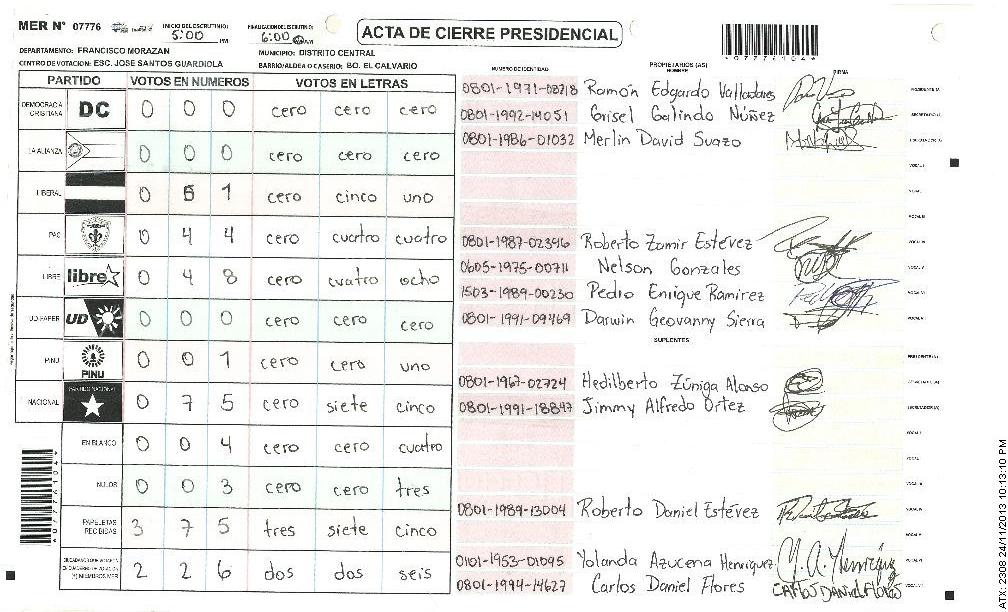 MER N° 07776
INICIO DEL ESCRUTINIO: 5:00 PM
FINALIZACION DEL ESCRUTINIO: 6:00
ACTA DE CIERRE PRESIDENCIAL
*07776104*
DEPARTAMENTO: FRANCISCO MORAZAN
MUNICIPIO: DISTRITO CENTRAL
CENTRO DE VOTACION: ESC. JOSE SANTOS GUARDIOLA
BARRIO/ALDEA O CASERIO: BO. EL CALVARIO
PARTIDO VOTOS EN NUMEROS VOTOS EN LETRAS
DEMOCRACIA CRISTIANA DC 0 0 0 cero cero cero
LA ALIANZA 0 0 0 cero cero cero
LIBERAL 0 5 1 cero cinco uno
PAC 0 4 4 cero cuatro cuatro
LIBRE libre 0 4 8 cero cuatro ocho
UD FAPER UD 0 0 0 cero cero cero
PINU PINU 0 0 1 cero cero uno
NACIONAL PARTIDO NACIONAL 0 7 5 cero siete cinco
EN BLANCO 0 0 4 cero cero cuatro
NULOS 0 0 3 cero cero tres
PAPELETAS RECIBIDAS 3 7 5 tres siete cinco
2 2 6 dos dos seis
NUMERO DE IDENTIDAD
PROPIETARIOS (AS)
NOMBRE
FIRMA
0801-1971-08718 Ramón Edgardo Valladares PRESIDENTE (A)
0801-1992-14051 Grisel Galindo Núñez SECRETARIO (A)
0801-1986-01032 Merlin David Suazo ESCRUTADOR (A)
VOCAL I
VOCAL II
VOCAL III
0801-1987-02396 Roberto Zamir Estévez VOCAL IV
0605-1975-00711 Nelson Gonzales VOCAL V
1503-1989-00230 Pedro Enrique Ramirez VOCAL VI
0801-1991-09469 Darwin Geovanny Sierra
SUPLENTES
PRESIDENTE (A)
0801-1967-02724 Hedilberto Zúniga Alonso
0801-1991-18847 Jimmy Alfredo Ortez
VOCAL I
0801-1989-13004 Roberto Daniel Estévez VOCAL IV
VOCAL V
0101-1953-01095 Yolanda Azucena Henriquez Y. A. Henríquez VOCAL VI
0801-1994-14627 Carlos Daniel Flores CARLOS DANIEL FLORES
*07776104*
ATX: 2308 24/11/2013 10:13:10 PM